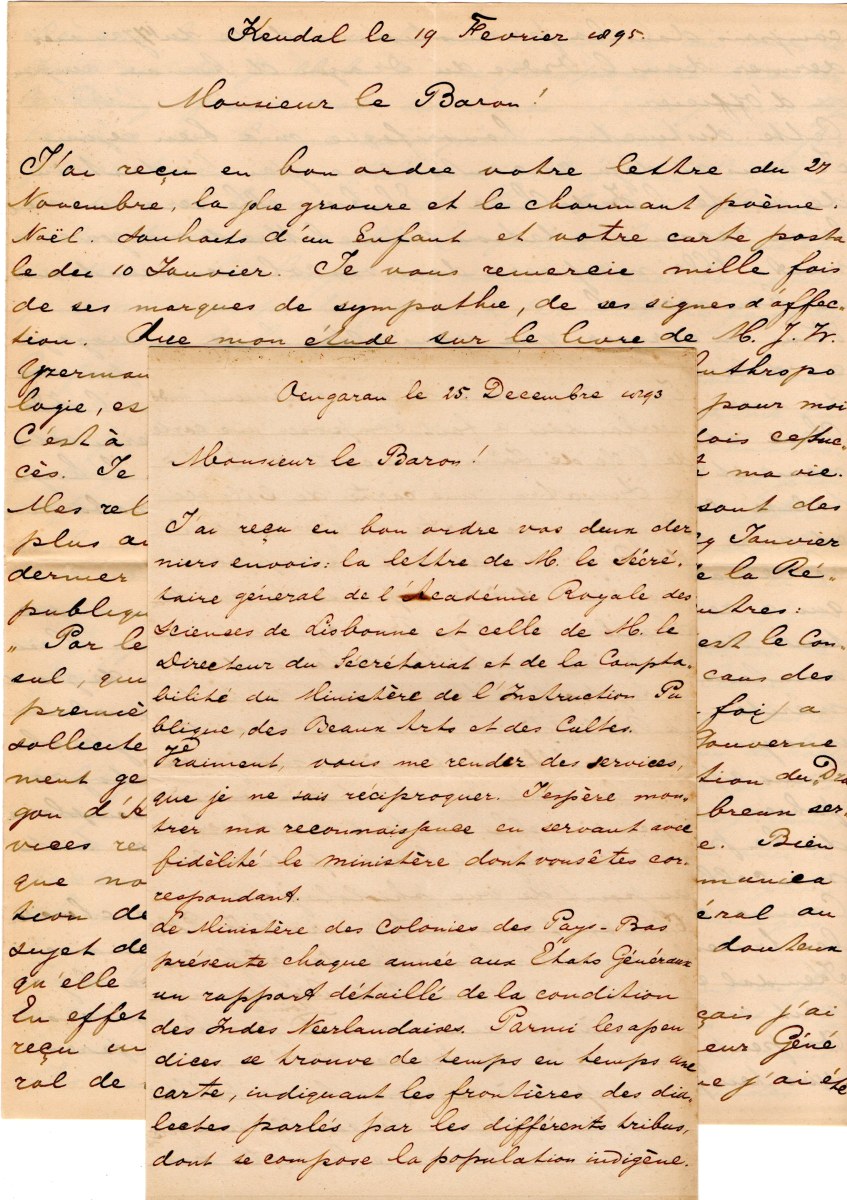 Kendal le 19 Fevrier 1895.
Monsieur le Baron!
J'ai reçu en bon ordre votre lettre du 27
Novembre, la jolie gravure et le charmant poème.
Noël. Souhaits d'un Enfant et votre carte posta
le du 10 Janvier. Je vous remercie mille fois
de ses marques de sympathie, de ses signes d'affec-
tion. Que mon étude sur le livre de M. J. W.
Yzerman
logie, es
C'est à
cès. Je
Mes rel
plus au
dernier
publiqu
" Par le
sul, qui
premiè
sollicite
ment ge
gon d'A
vices re
que no
tion de
sujet de
qu'elle
En effet
reçu un
ral de
Anthropo
pour moi
ma vie.
sont des
Janvier
de la Ré-
autres:
est le Con-
cans des
foi) a
Gouverne
tion du Dra
breux ser-
e. Bien
munica
éral au
douteux
çais j'ai
eur Géné
que j'ai été
Oengaran le 25 Decembre 1893
Monsieur le Baron!
J'ai reçu en bon ordre vos deux der
niers envois: la lettre de M. le Sécré-
taire général de l'Académie Royale des
Sciences de Lisbonne et celle de M. le
Directeur du Secrétariat et de la Compta-
bilité du Ministère de l'Instruction Pu
blique, des Beaux Arts et des Cultes.
Vraiment, vous me rendez des services,
que je ne sais réciproquer. J'espère mon-
trer ma reconnaissance en servant avec
fidélité le ministère dont vous êtes cor-
respondant.
Le Ministère des Colonies des Pays-Bas
présente chaque année aux États Généraux
un rapport détaillé de la condition
des Indes Neerlandaises. Parmi les apen
dices se trouve de temps en temps une
carte, indiquant les frontières des dia-
lectes parlés par les différents tribus,
dont se compose la population indigène.